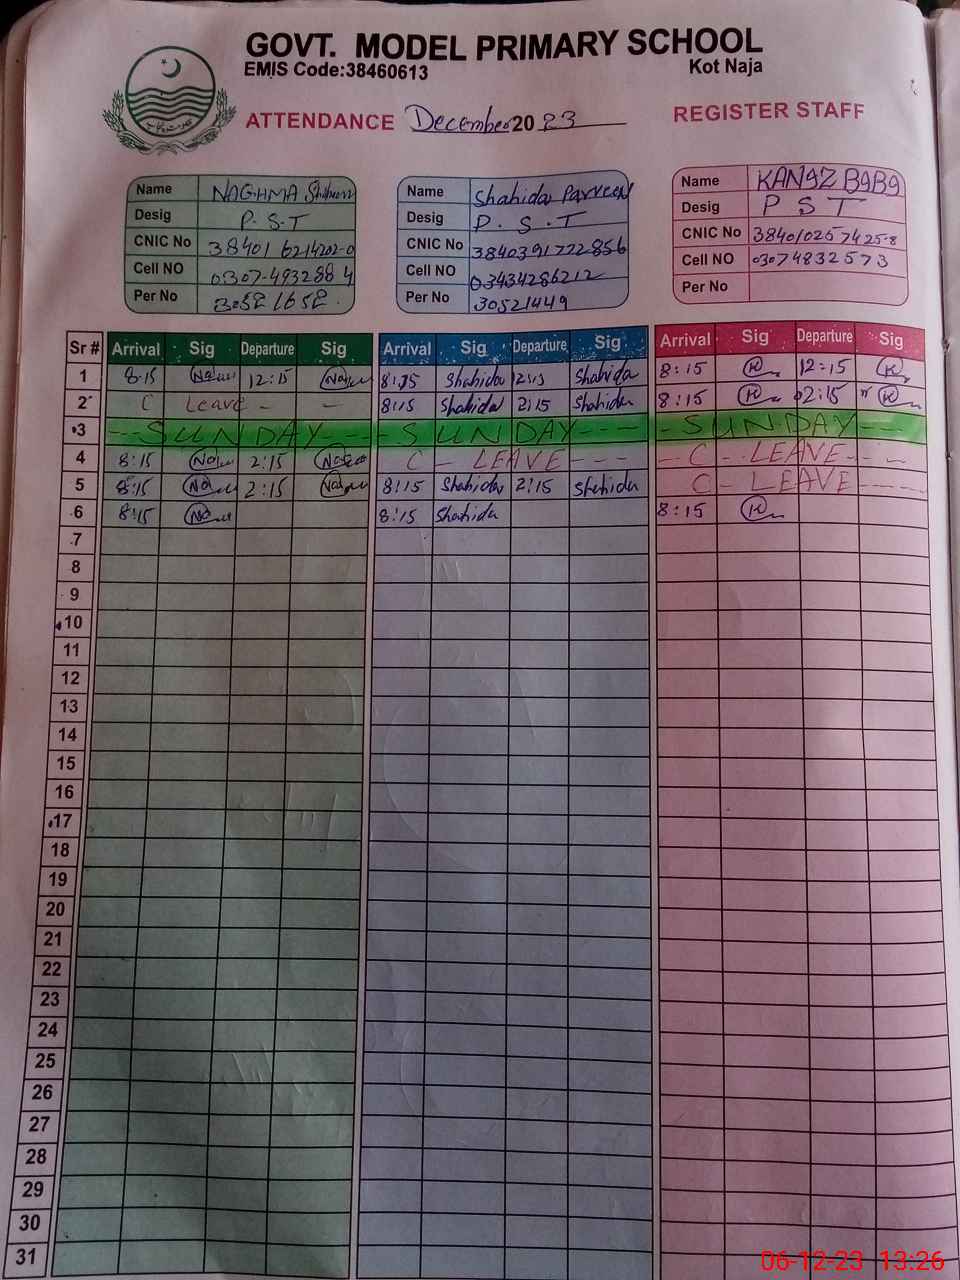 GOVT. MODEL PRIMARY SCHOOL
EMIS Code:38460613 Kot Naja
ATTENDANCE December 2023 REGISTER STAFF
Name NAGHMA
Desig P.S.T
CNIC No 38401 6214202-0
Cell NO 0307-4932884
Per No 30521652
Name Shahida Parveen
Desig P.S.T
CNIC No 3840391772856
Cell NO 03434286212
Per No 30521449
Name KANIZ
Desig PST
CNIC No 3840102574258
Cell NO 03074832573
Per No
Sr # Arrival Sig Departure Sig Arrival Sig Departure Sig Arrival Sig Departure Sig
1 8:15 12:15 8:15 Shahida 12:15 Shahida 8:15 K 12:15 K
2 C Leave - - 8:15 Shahida 2:15 Shahida 8:15 K 02:15 K
3 --- SUNDAY --- SUNDAY --- SUNDAY ---
4 8:15 2:15 C - LEAVE --- C - LEAVE ---
5 8:15 2:15 8:15 Shahida 2:15 Shahida C - LEAVE ---
6 8:15 8:15 Shahida 8:15 K
7
8
9
10
11
12
13
14
15
16
17
18
19
20
21
22
23
24
25
26
27
28
29
30
31
06-12-23 13:26